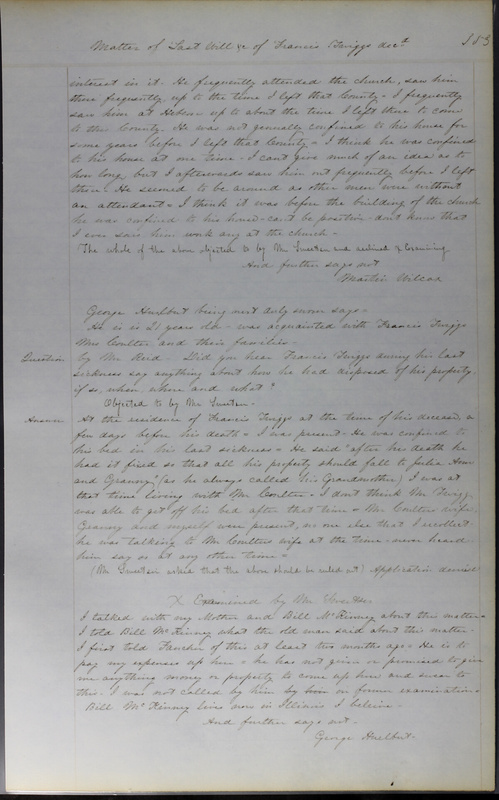 Matter of Last Will &c of Francis Triggs decd
interest in it - He frequently attended the church, saw him
there frequently, up to the time I left that County - I frequently
saw him at Hebron up to about the time I left there to come
to this County. He was not generally confined to his house for
some years before I left that County - I think he was confined
to his house at one time - I cant give much of an idea as to
how long but I afterwards saw him out frequently before I left
there. He seemed to be around as other men were without
an attendant - I think it was before the building of the church
he was confined to his house - cant be positive - dont know that
I ever saw him work any at the church -
The whole of the above objected to by Mr and declined X Examining
And further says not
Martin Wilcox
George Hurlbut being next duly sworn says -
He is is 21 years old - was acquainted with Francis Triggs
Mrs Coulter and their families -
Question by Mr Reid - Did you hear Francis Triggs during his last
sickness say anything about how he had disposed of his property,
if so, when, where and what?
Objected to by Mr
Answer At the residence of Francis Triggs at the time of his decease, a
few days before his death - I was present - He was confined to
his bed in his last sickness - He said "after his death he
had it fixed so that all his property should fall to Julia Ann
and Granny" (as he always called his Grandmother) I was at
that time living with Mr Coulter - I dont think Mr Triggs
was able to get off his bed after that time - Mr Coulters wife,
Granny and myself were present, no one else that I recollect
he was talking to Mr Coulters wife at the time - never heard
him say so at any other time -
(Mr asked that the above should be ruled out) Application denied
X Examined by Mr
I talked with my Mother and Bill McKinney about this matter -
I told Bill McKinney what the old man said about this matter -
I first told Fancher of this at least two months ago - He is to
pay my expenses up here - he has not given or promised to give
me anything money or property to come up here and swear to
this - I was not called by him by him on former examination -
Bill McKinney lives now in Illinois I believe -
And further says not -
George Hurlbut -